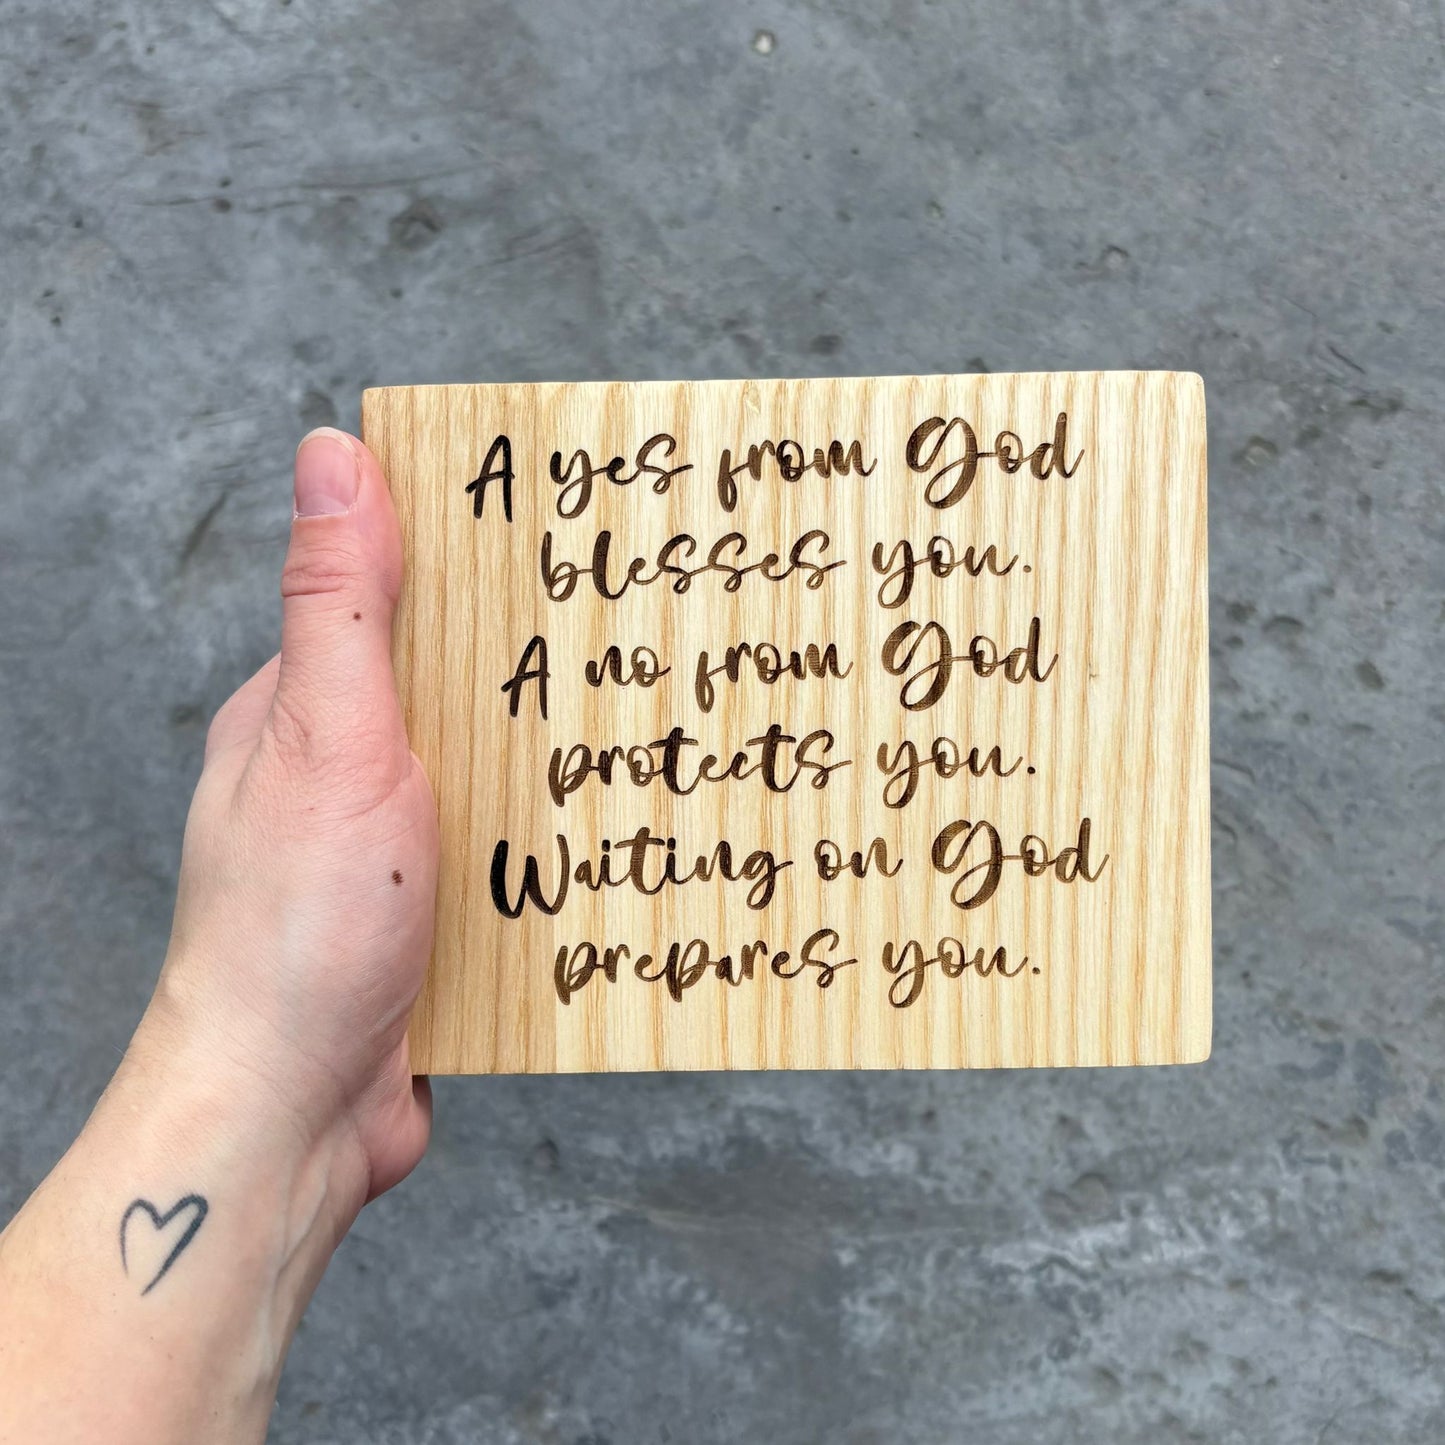 A yes from God
blesses you.
A no from God
protects you.
Waiting on God
prepares you.